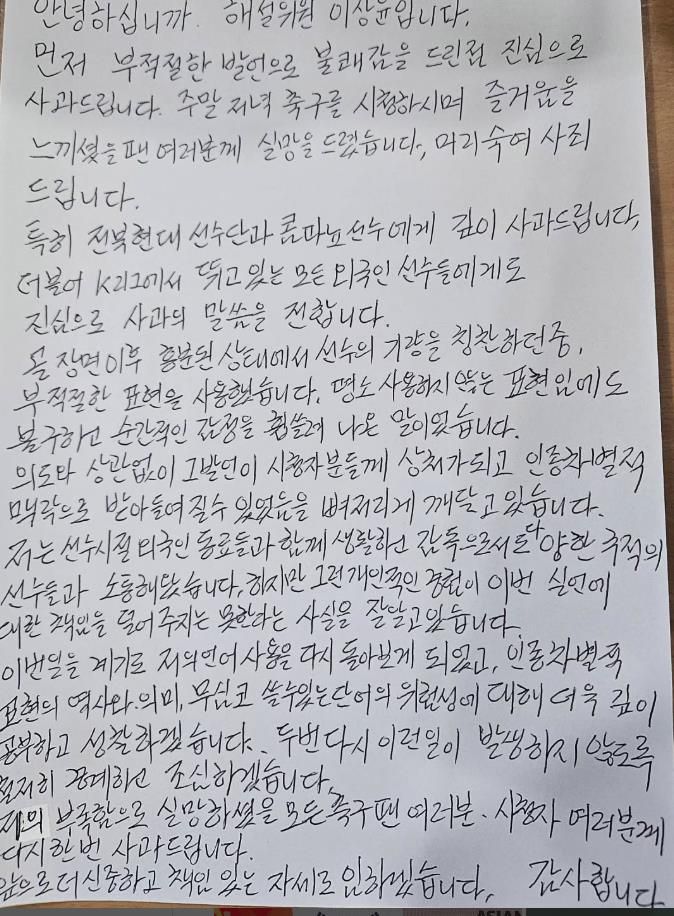 안녕하십니까. 해설위원 이상윤입니다.
먼저 부적절한 발언으로 불쾌감을 드린점 진심으로
사과드립니다. 주말 저녁 축구를 시청하시며 즐거움을
느끼셨을 팬 여러분께 실망을 드렸습니다, 머리숙여 사죄
드립니다.
특히 전북현대 선수단과 콤파뇨 선수에게 깊이 사과드립니다,
더불어 K리그에서 뛰고 있는 모든 외국인 선수들에게도
진심으로 사과의 말씀을 전합니다.
골 장면이후 흥분된 상태에서 선수의 기량을 칭찬하던 중,
부적절한 표현을 사용했습니다, 평소 사용하지 않는 표현임에도
불구하고 순간적인 감정을 휩쓸려 나온 말이었습니다.
의도와 상관없이 그발언이 시청자분들께 상처가 되고 인종차별적
맥락으로 받아들여질수 있었음을 뼈저리게 깨닫고 있습니다.
저는 선수시절 외국인 동료들과 함께 생활하고 감독으로서도 다양한 국적의
선수들과 소통해왔습니다, 하지만 그런 개인적인 경험이 이번 실언에
대한 책임을 덜어 주지는 못한다는 사실을 잘알고있습니다.
이번일을 계기로 저의언어 사용을 다시 돌아보게 되었고, 인종차별적
표현의 역사와 의미, 무심코 쓸수있는 단어의 위험성에 대해 더욱 깊이
공부하고 성찰하겠습니다. 두번다시 이런일이 발생하지 않도록
철저히 경계하고 조심하겠습니다,
저의 부족함으로 실망하셨을 모든 축구 팬 여러분. 시청자 여러분께
다시한번 사과드립니다.
앞으로 더 신중하고 책임 있는 자세로 임하겠습니다, 감사합니다